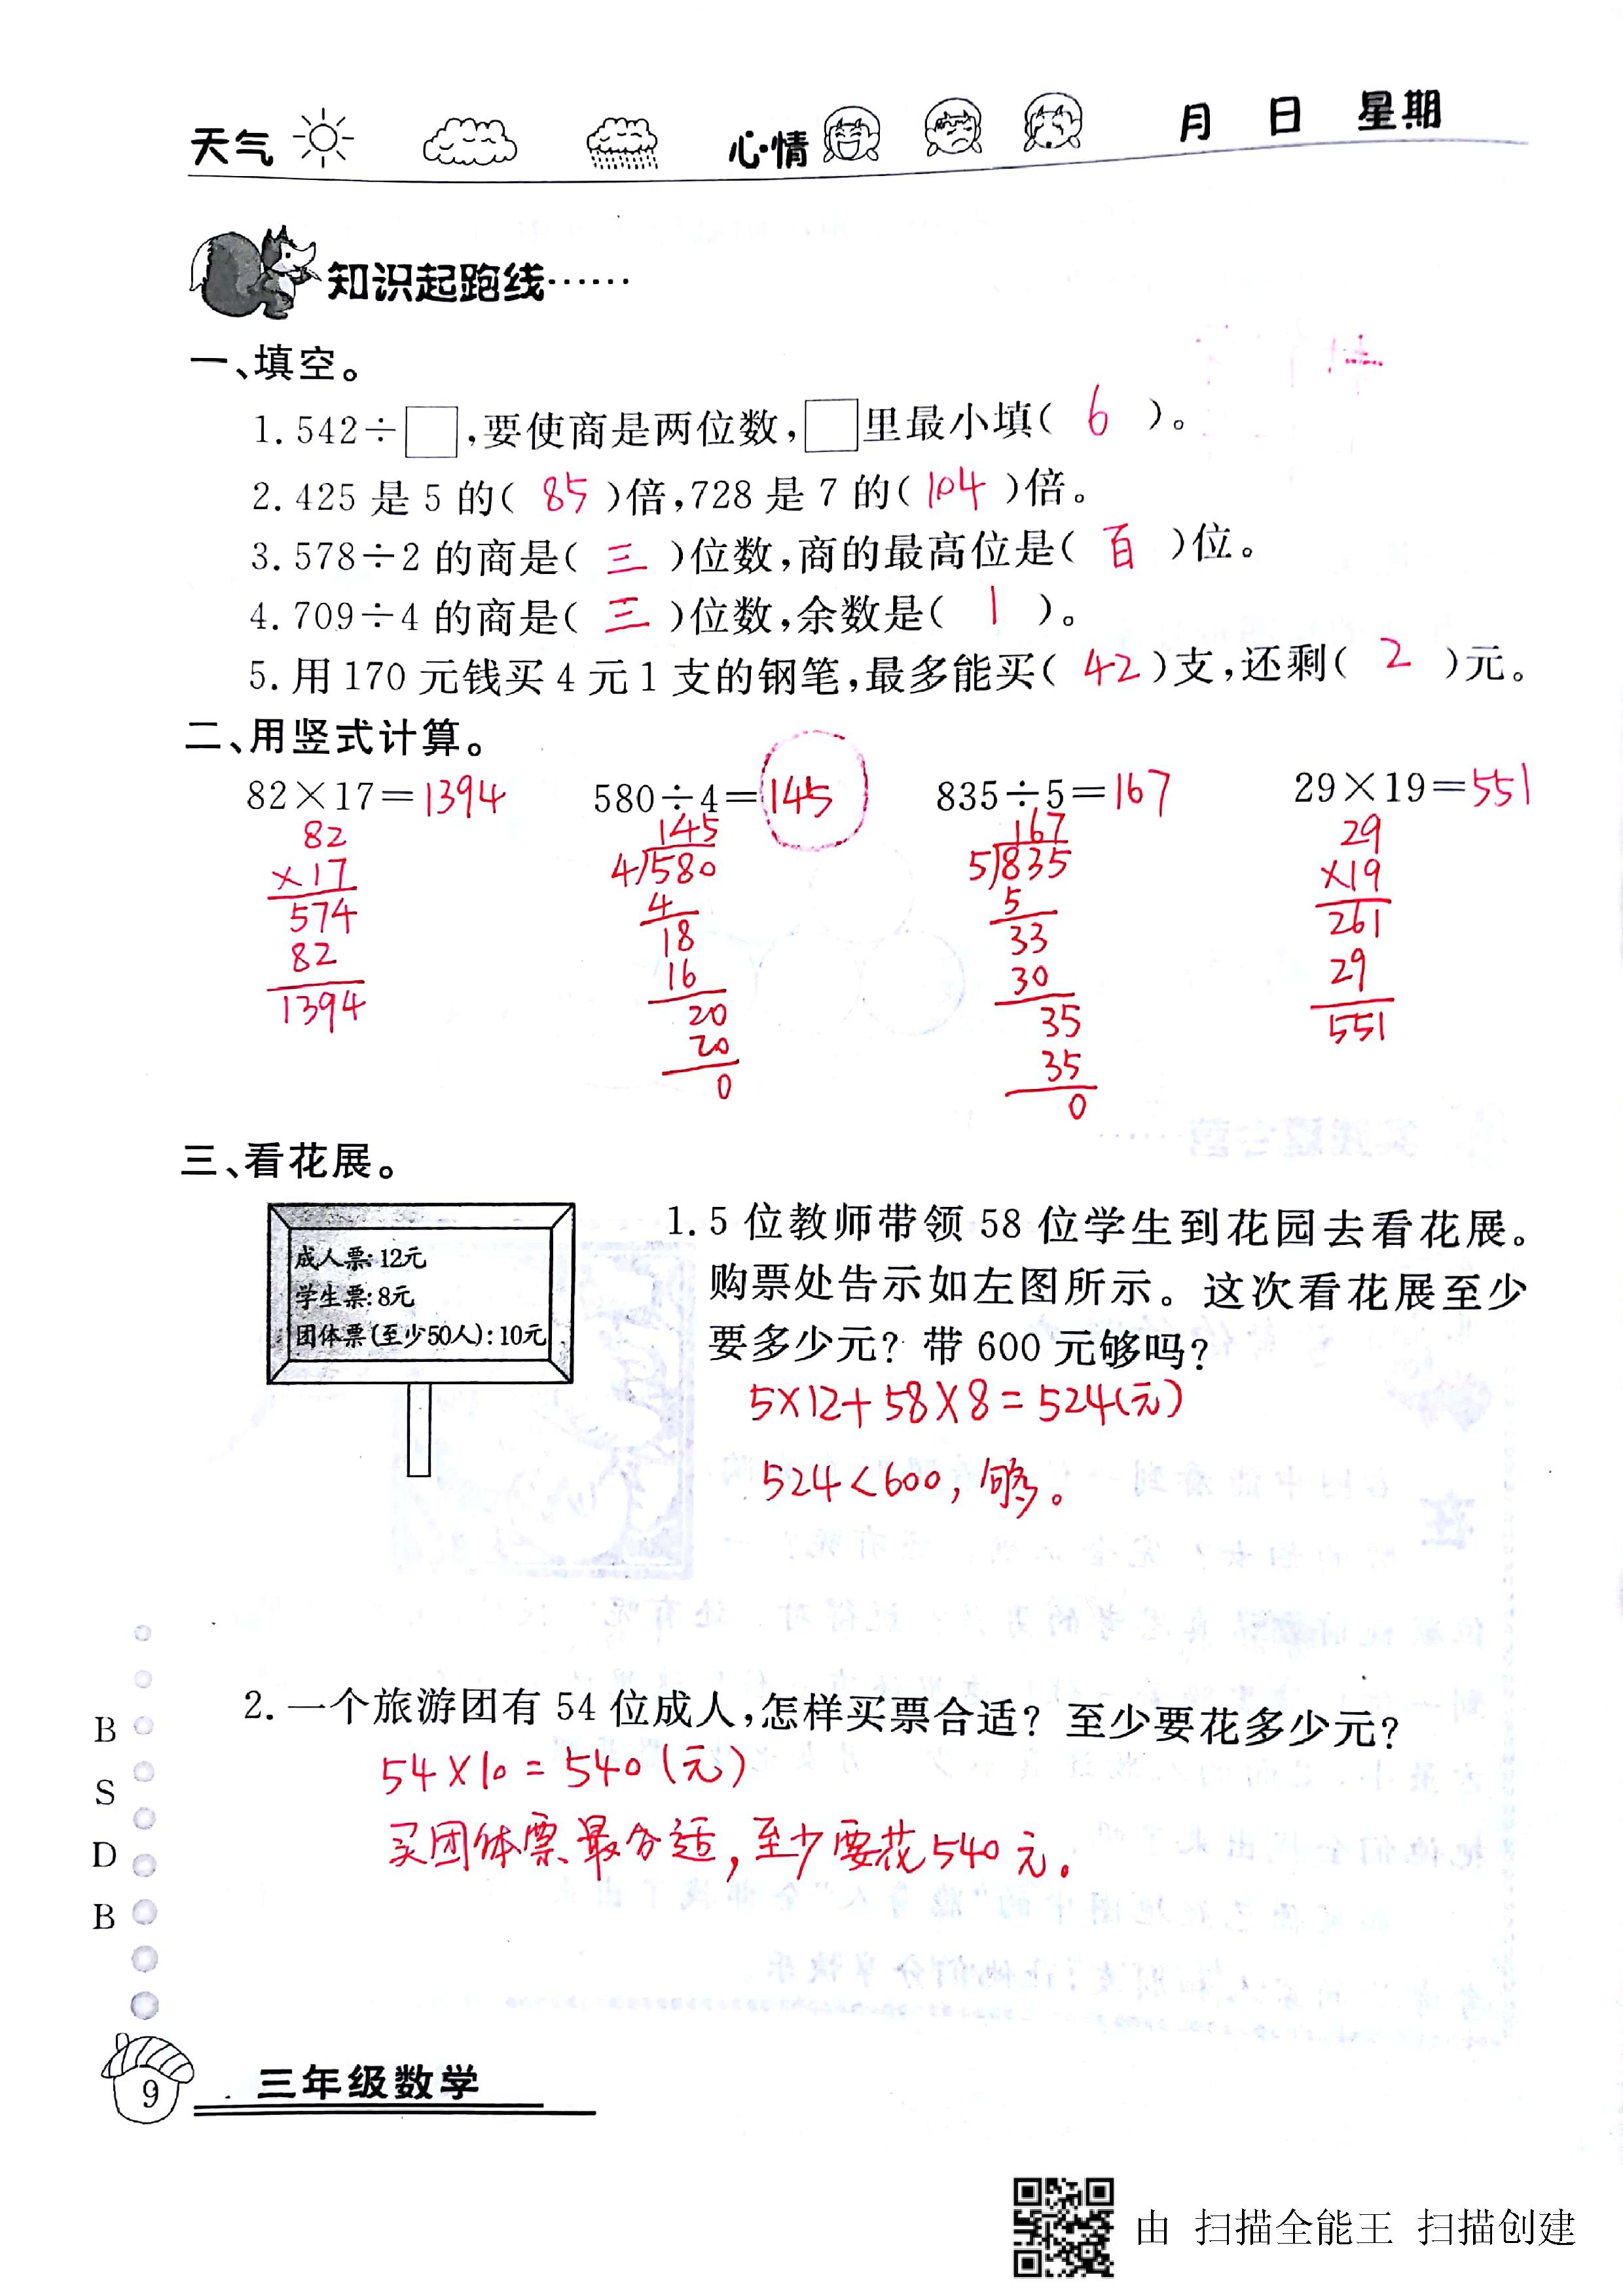 天气 心情 月 日 星期
知识起跑线……
一、填空。
1. 542÷□,要使商是两位数,□里最小填( 6 )。
2. 425 是 5 的( 85 )倍,728 是 7 的( 104 )倍。
3. 578÷2 的商是( 三 )位数,商的最高位是( 百 )位。
4. 709÷4 的商是( 三 )位数,余数是( 1 )。
5. 用 170 元钱买 4 元 1 支的钢笔,最多能买( 42 )支,还剩( 2 )元。
二、用竖式计算。
82×17=1394 580÷4=145 835÷5=167 29×19=551
82
×17
574
82
1394
145
4)580
4
18
16
20
20
0
167
5)835
5
33
30
35
35
0
29
×19
261
29
551
三、看花展。
成人票:12元
学生票:8元
团体票(至少50人):10元
1. 5 位教师带领 58 位学生到花园去看花展。
购票处告示如左图所示。这次看花展至少
要多少元? 带 600 元够吗?
5×12+58×8=524(元)
524<600,够。
2. 一个旅游团有 54 位成人,怎样买票合适? 至少要花多少元?
54×10=540(元)
买团体票最合适,至少要花540元。
B
S
D
B
9 三年级数学
由 扫描全能王 扫描创建